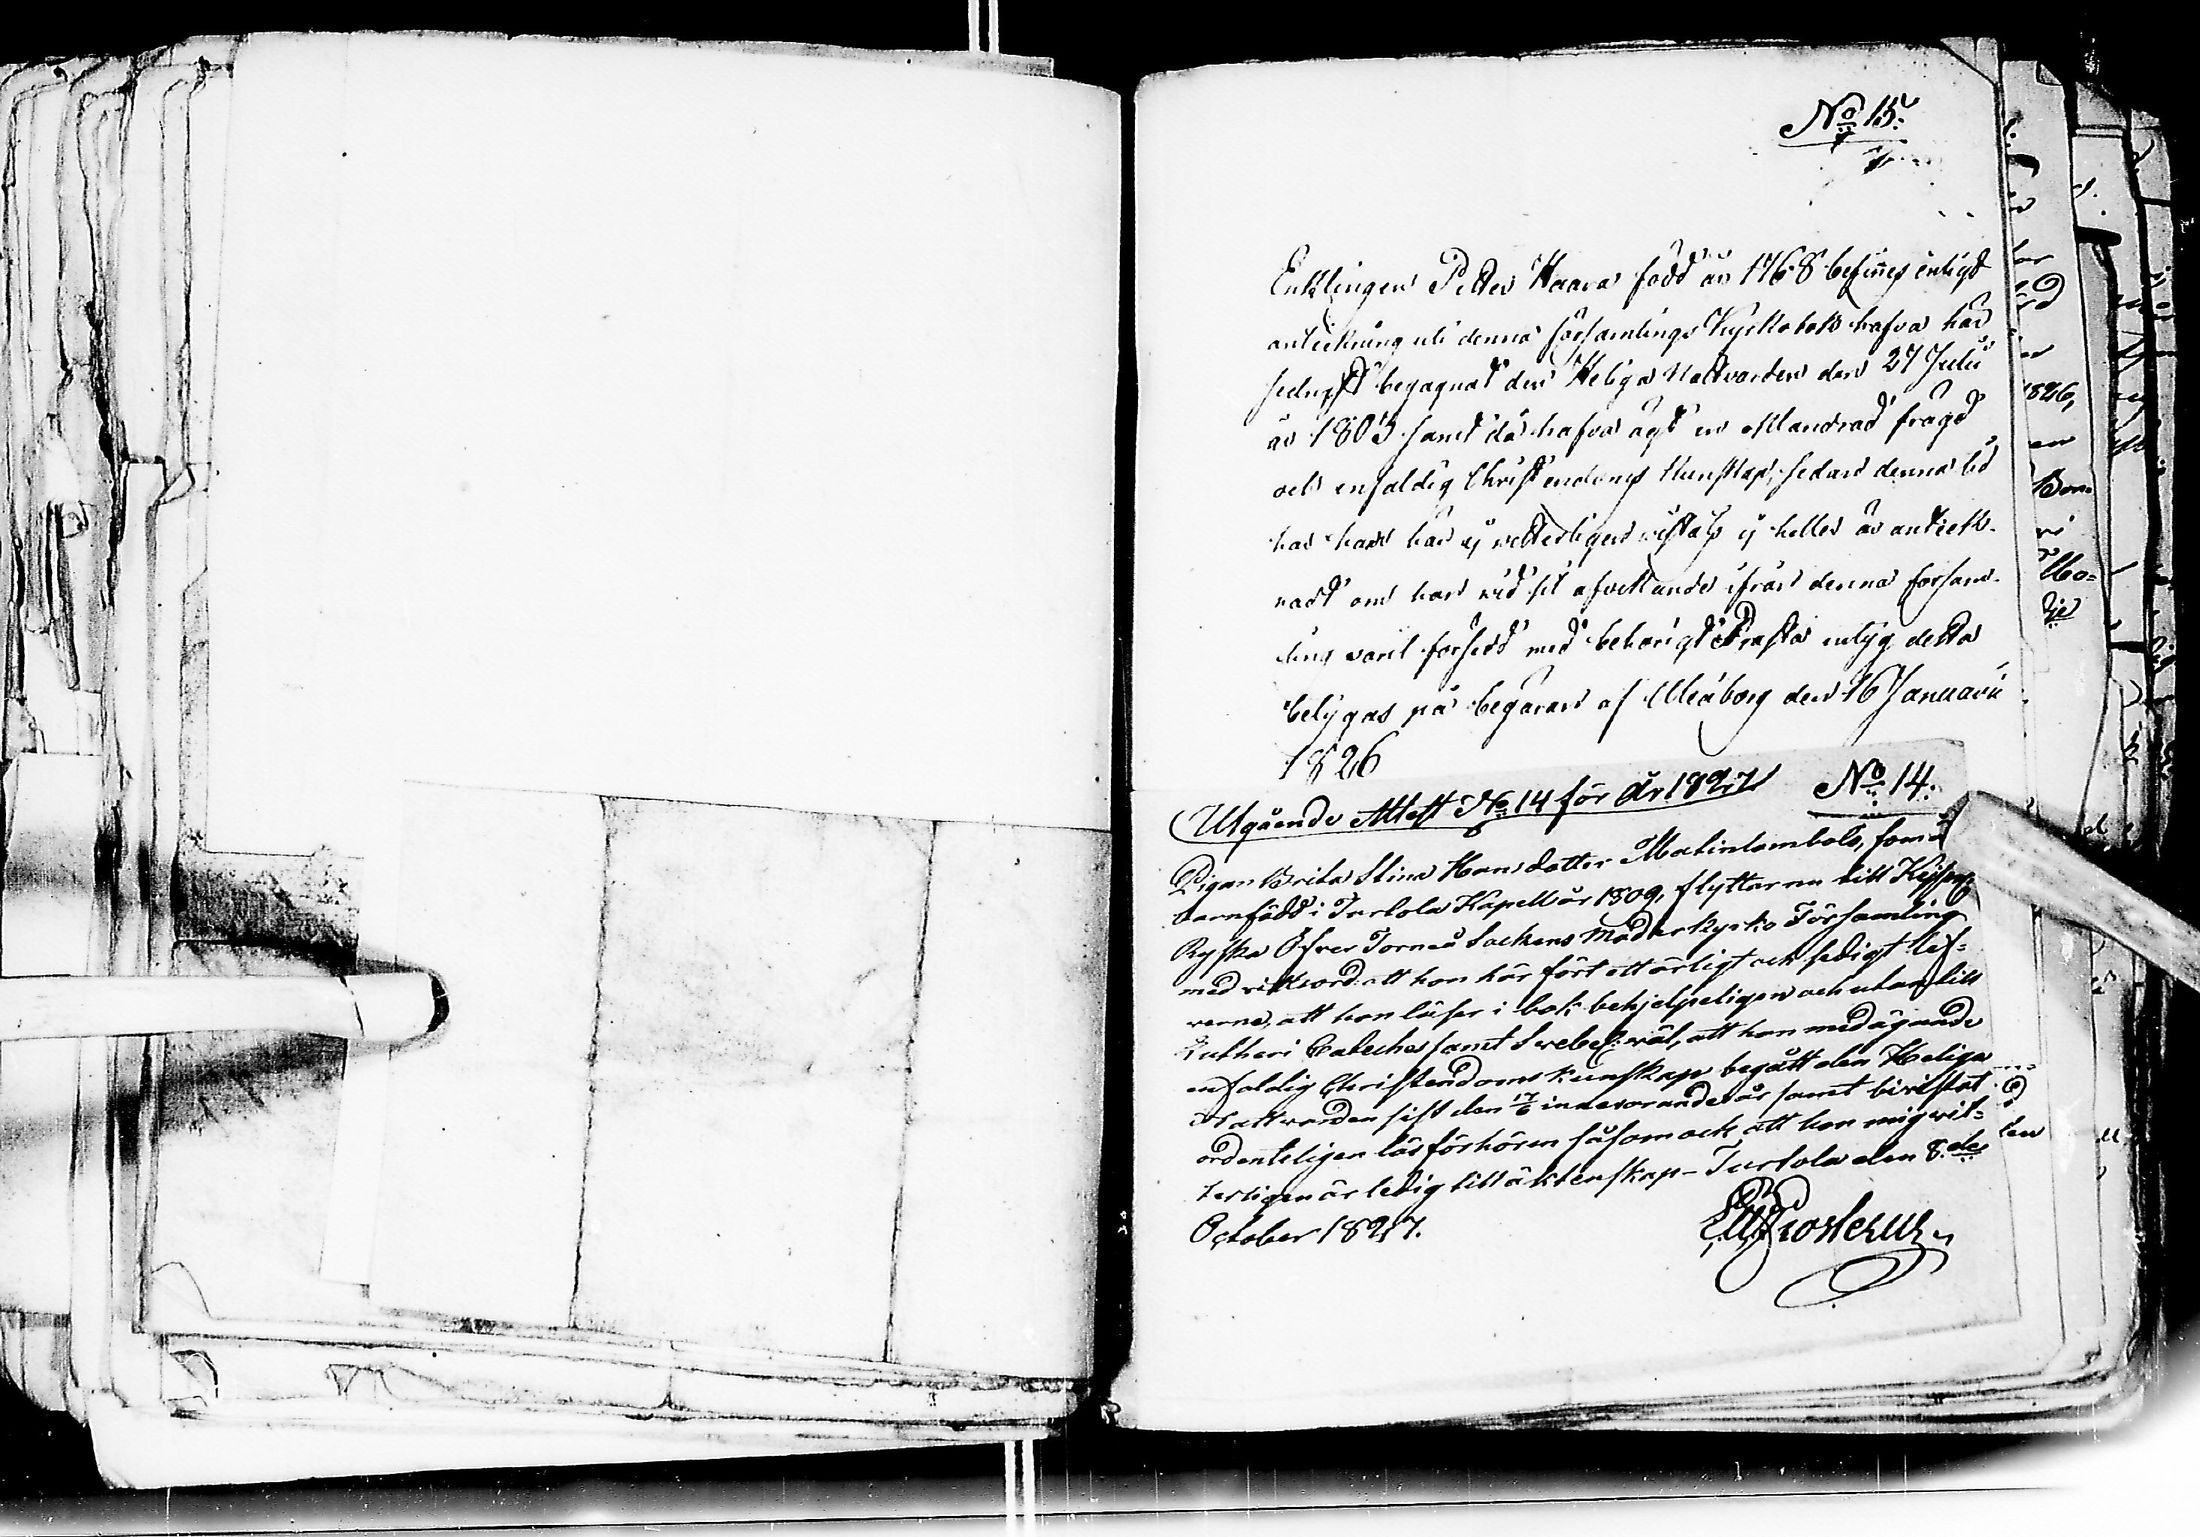 No 15.
Enklingen Petter Haara född år 1768 befinnes enligt
anteckning uti denna församlings Kyrkobok hafva här
sednast begagnat den Heliga Nattvarden den 27 Julii
år 1803 samt då hafva ägt en oklandrad frägd
och enfaldig Christendoms kunskap, sedan denna tid
har han här ej vetterligen vistats ej heller är anteck-
nadt om han vid sit afvikande ifrån denna försam-
ling varit försedd med behörigt Prästa intyg detta
betygas på begäran af Uleåborg den 16 Januarii
1826
Utgående Attest No 14 för År 1827 No 14.
Pigan Brita Stina Hansdotter Matinlombolo, som är
barnfödd i Turtola Kapell år 1809, flyttar nu till Kejserl.
Ryska Öfver Torneå Sockens Moderkyrko Församling
med vitsord: att hon här fört ett ärligt och sedigt lef-
verne, att hon läser i bok behjelpeligen och utantill
Lutheri Cateches samt Svebel: väl, att hon med ägande
enfaldig Christendoms kunskap begått den Heliga
Nattvarden sist den 17/6 innevarande år samt bivistat
ordenteligen läsförhören såsom ock att hon mig vit-
terligen är ledig till äktenskap – Turtola den 8:de
October 1827.
1826,